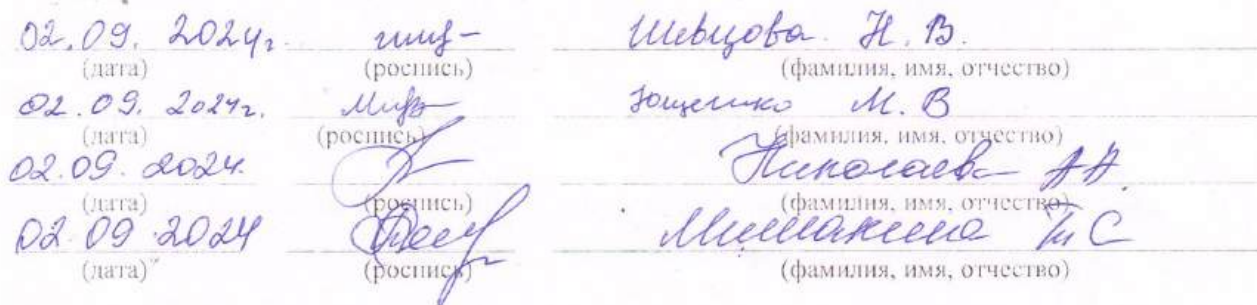 02.09.2024г. Шевцова Н.В.
(дата) (роспись) (фамилия, имя, отчество)
02.09.2024г. Ющенко М.В
(дата) (роспись) (фамилия, имя, отчество)
02.09.2024. Николаева АА
(дата) (роспись) (фамилия, имя, отчество)
02 09 2024 Мишакина Т С
(дата) (роспись) (фамилия, имя, отчество)